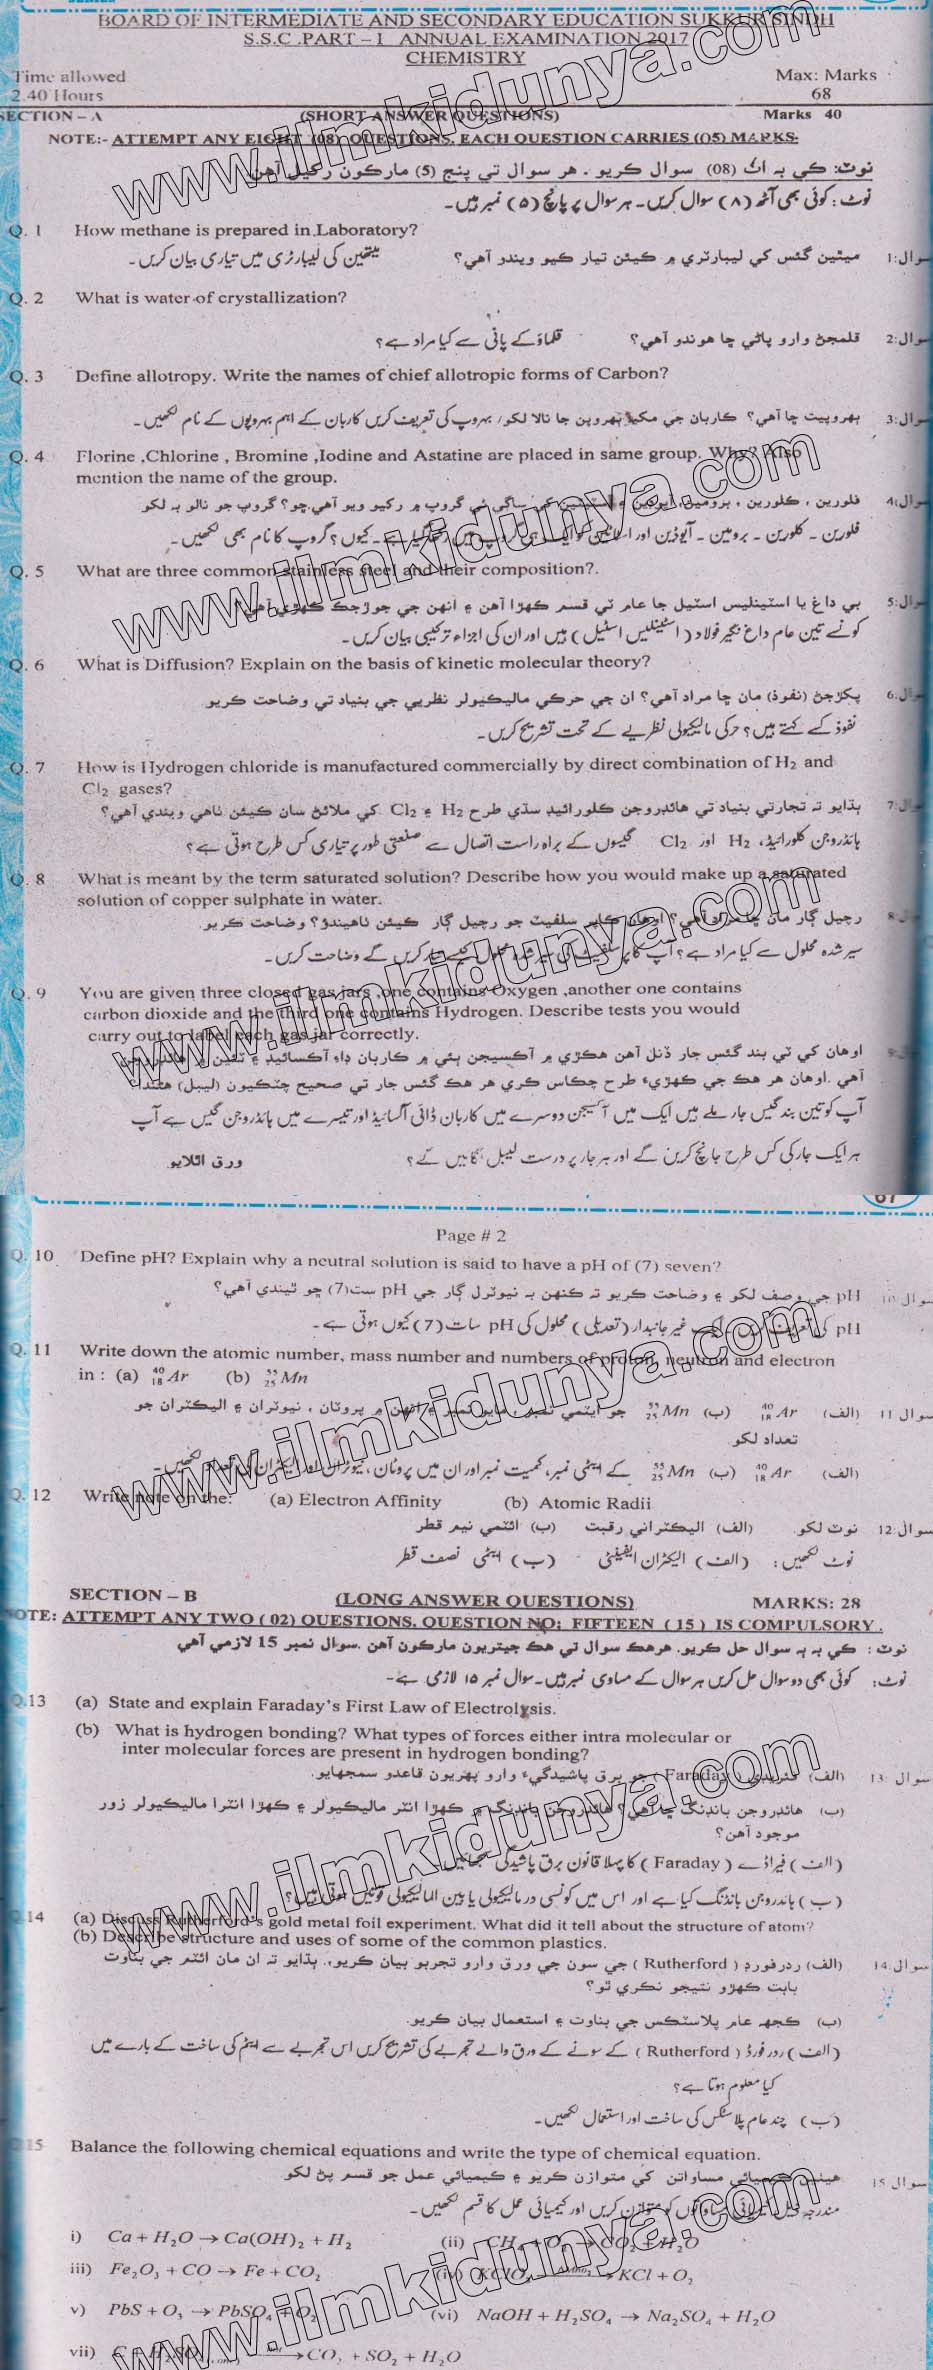 BOARD OF INTERMEDIATE AND SECONDARY EDUCATION SUKKUR SINDH
S.S.C .PART – I ANNUAL EXAMINATION 2017
CHEMISTRY
Time allowed Max: Marks
2.40 Hours 68
SECTION – A (SHORT ANSWER QUESTIONS) Marks 40
NOTE:- ATTEMPT ANY EIGHT (08) QUESTIONS. EACH QUESTION CARRIES (05) MARKS.
نوٽ: ڪي بہ اٺ (08) سوال ڪريو . هر سوال تي پنج (5) مارڪون رکيل آهن.
نوٹ : کوئی بھی آٹھ (۸) سوال کریں۔ ہر سوال پر پانچ (۵) نمبر ہیں۔
Q. 1 How methane is prepared in Laboratory?
سوال:1 ميٿين گئس کي ليبارٽري ۾ ڪيئن تيار ڪيو ويندو آهي؟ میتھین کی لیبارٹری میں تیاری بیان کریں۔
Q. 2 What is water of crystallization?
سوال:2 قلمجڻ وارو پاڻي ڇا هوندو آهي؟ قلماؤ کے پانی سے کیا مراد ہے؟
Q. 3 Define allotropy. Write the names of chief allotropic forms of Carbon?
سوال:3 بهروپيت ڇا آهي؟ ڪاربان جي مکيه بهروپن جا نالا لکو/ بہروپ کی تعریف کریں کاربان کے اہم بہروپوں کے نام لکھیں۔
Q. 4 Florine ,Chlorine , Bromine ,Iodine and Astatine are placed in same group. Why? Also
mention the name of the group.
سوال:4 فلورين ، ڪلورين ، برومين، آيوڊين ۽ اسٽيٽين کي ساڳي ئي گروپ ۾ رکيو ويو آهي.ڇو؟ گروپ جو نالو بہ لکو
فلورین ۔ کلورین ۔ برومین ۔ آیوڈین اور اسٹاٹین کو ایک ہی گروپ میں رکھا گیا ہے ۔ کیوں ؟ گروپ کا نام بھی لکھیں۔
Q. 5 What are three common stainless steel and their composition?.
سوال:5 بي داغ يا اسٽينليس اسٽيل جا عام ٽي قسم ڪهڙا آهن ۽ انهن جي جوڙجڪ ڪهڙي آهي؟
کونسے تین عام داغ نگیر فولاد ( اسٹینلیس اسٹیل ) ہیں اور ان کی اجزاء ترکیبی بیان کریں۔
Q. 6 What is Diffusion? Explain on the basis of kinetic molecular theory?
سوال:6 پکڙجڻ (نفوذ) مان ڇا مراد آهي؟ ان جي حرڪي ماليڪيولر نظريي جي بنياد تي وضاحت ڪريو
نفوذ کسے کہتے ہیں؟ حرکی مالیکیولی نظریے کے تحت تشریح کریں۔
Q. 7 How is Hydrogen chloride is manufactured commercially by direct combination of H₂ and
Cl₂ gases?
سوال:7 ٻڌايو تہ تجارتي بنياد تي هائڊروجن ڪلورائيڊ سڌي طرح H₂ ۽ Cl₂ کي ملائڻ سان ڪيئن ٺاهي ويندي آهي؟
ہائڈروجن کلورائیڈ، H₂ اور Cl₂ گیسوں کے براہ راست اتصال سے صنعتی طور پر تیاری کس طرح ہوتی ہے؟
Q. 8 What is meant by the term saturated solution? Describe how you would make up a saturated
solution of copper sulphate in water.
سوال:8 رچيل ڳار مان ڇا مراد آهي؟ اوهان ڪاپر سلفيٽ جو رچيل ڳار ڪيئن ٺاهيندؤ؟ وضاحت ڪريو.
سیر شدہ محلول سے کیا مراد ہے؟ آپ کاپر سلفیٹ کی سیر شدہ محلول کیسے تیار کریں گے وضاحت کریں۔
Q. 9 You are given three closed gas jars ,one contains Oxygen ,another one contains
carbon dioxide and the third one contains Hydrogen. Describe tests you would
carry out to label each gas jar correctly.
سوال:9 اوهان کي ٽي بند گئس جار ڏنل آهن هڪڙي ۾ آڪسيجن ٻئي ۾ ڪاربان ڊاءِ آڪسائيڊ ۽ ٽئين ۾ هائڊروجن
آهي .اوهان هر هڪ جي ڪهڙيءَ طرح چڪاس ڪري هر هڪ گئس جار تي صحيح چٽڪيون (ليبل) هڻندا.
آپ کو تین بند گیس جار ملے ہیں ایک میں آکسیجن دوسرے میں کاربان ڈائی آکسائیڈ اور تیسرے میں ہائڈروجن گیس ہے آپ
ہر ایک جار کی کس طرح جانچ کریں گے اور ہر جار پر درست لیبل لگائیں گے؟ ورق اٿلايو
67
Page # 2
Q. 10 Define pH? Explain why a neutral solution is said to have a pH of (7) seven?
سوال 10 pH جي وصف لکو ۽ وضاحت ڪريو تہ ڪنهن بہ نيوٽرل ڳار جي pH ست(7) ڇو ٿيندي آهي؟
pH کی تعریف کریں۔ ایک غیر جانبدار (تعدیلی) محلول کی pH سات (7) کیوں ہوتی ہے۔
Q. 11 Write down the atomic number, mass number and numbers of proton, neutron and electron
in : (a) ⁴⁰₁₈Ar (b) ⁵⁵₂₅Mn
سوال 11 (الف) ⁴⁰₁₈Ar (ب) ⁵⁵₂₅Mn جو ايٽمي نمبر ، مايو نمبر ۽ انهن ۾ پروٽان ، نيوٽران ۽ اليڪٽران جو
تعداد لکو
(الف) ⁴⁰₁₈Ar (ب) ⁵⁵₂₅Mn کے ایٹمی نمبر، کمیت نمبر اور ان میں پروٹان ، نیوٹران اور الیکٹران کی تعداد لکھیں۔
Q. 12 Write note on the: (a) Electron Affinity (b) Atomic Radii
سوال:12 نوٽ لکو. (الف) اليڪٽراني رقبت (ب) ائٽمي نيم قطر
نوٹ لکھیں: (الف) الیکٹران ایفینیٹی (ب) ایٹمی نصف قطر
SECTION – B (LONG ANSWER QUESTIONS) MARKS: 28
NOTE: ATTEMPT ANY TWO ( 02) QUESTIONS. QUESTION NO: FIFTEEN ( 15 ) IS COMPULSORY .
نوٽ : ڪي بہ ٻہ سوال حل ڪريو. هرهڪ سوال تي هڪ جيتريون مارڪون آهن .سوال نمبر 15 لازمي آهي
نوٹ: کوئی بھی دو سوال حل کریں ہر سوال کے مساوی نمبر ہیں۔ سوال نمبر ۱۵ لازمی ہے۔
Q.13 (a) State and explain Faraday's First Law of Electrolysis.
(b) What is hydrogen bonding? What types of forces either intra molecular or
inter molecular forces are present in hydrogen bonding?
سوال 13 (الف) فئريڊي ( Faraday ) جو برق پاشيدگيءَ وارو پهريون قاعدو سمجهايو.
(ب) هائڊروجن بانڊنگ ڇا آهي؟ هائڊروجن بانڊنگ ۾ ڪهڙا انٽر ماليڪيولر ۽ ڪهڙا انٽرا ماليڪيولر زور
موجود آهن؟
(الف) فیراڈے ( Faraday ) کا پہلا قانون برق پاشیدگی سمجھائیں۔
(ب) ہائڈروجن بانڈنگ کیا ہے اور اس میں کونسی در مالیکیولی یا بین المالیکیولی قوتیں ہوتی ہیں؟
Q.14 (a) Discuss Rutherford's gold metal foil experiment. What did it tell about the structure of atom?
(b) Describe structure and uses of some of the common plastics.
سوال 14 (الف) ردرفورڊ ( Rutherford ) جي سون جي ورق وارو تجربو بيان ڪريو،. ٻڌايو تہ ان مان ائٽم جي بناوت
بابت ڪهڙو نتيجو نڪري ٿو؟
(ب) ڪجهہ عام پلاسٽڪس جي بناوت ۽ استعمال بيان ڪريو.
(الف) ردرفورڈ ( Rutherford ) کے سونے کے ورق والے تجربے کی تشریح کریں اس تجربے سے ایٹم کی ساخت کے بارے میں
کیا معلوم ہوتا ہے؟
(ب) چند عام پلاسٹکس کی ساخت اور استعمال لکھیں۔
Q.15 Balance the following chemical equations and write the type of chemical equation.
سوال 15 هيٺين ڪيميائي مساواتن کي متوازن ڪريو ۽ ڪيميائي عمل جو قسم پڻ لکو.
مندرجہ ذیل کیمیائی مساواتوں کو متوازن کریں اور کیمیائی عمل کا قسم لکھیں۔
i) Ca + H₂O → Ca(OH)₂ + H₂ (ii) CH₄ + O₂ → CO₂ + H₂O
iii) Fe₂O₃ + CO → Fe + CO₂ (iv) KClO₃ → KCl + O₂
v) PbS + O₃ → PbSO₄ + O₂ (vi) NaOH + H₂SO₄ → Na₂SO₄ + H₂O
vii) C + H₂SO₄(conc) → CO₂ + SO₂ + H₂O
www.ilmkidunya.com
www.ilmkidunya.com
www.ilmkidunya.com
www.ilmkidunya.com
www.ilmkidunya.com
www.ilmkidunya.com